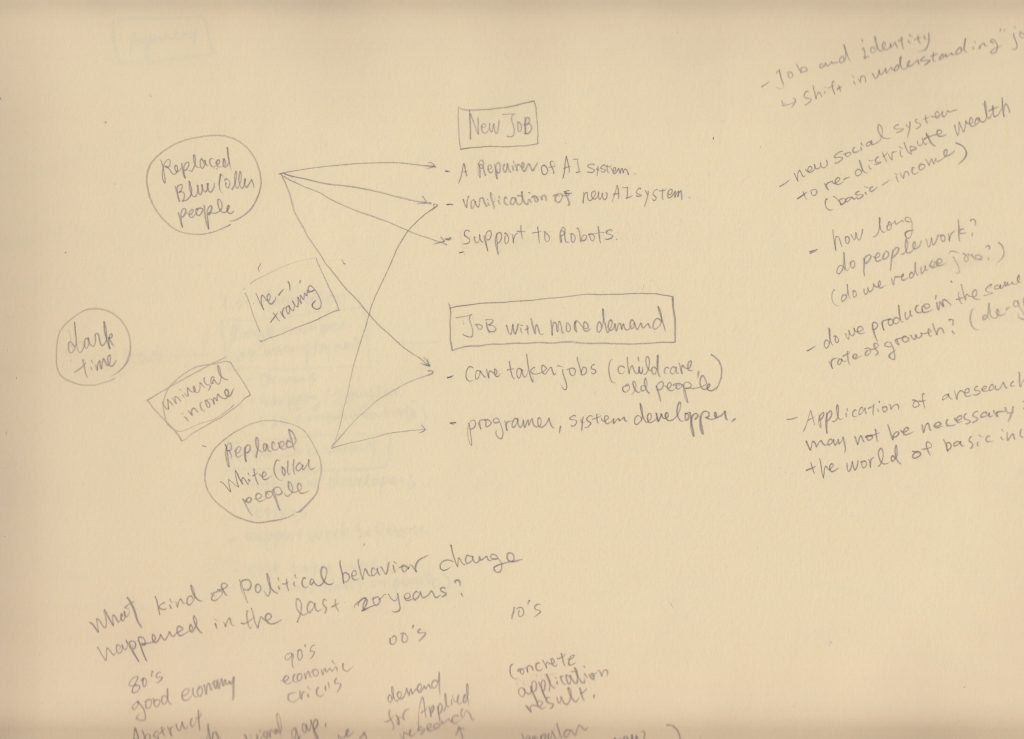 New JOB
Replaced
Blue Coller
people
- A Repairer of AI system.
- varification of new AI system.
- Support to Robots.
re-
training
JOB with more demand
- Care taker jobs (child care,
old people)
- programer, system developper.
dark
time
universal
income
Replaced
White Collar
people
- Job and identity
↳ Shift in understanding "jo
- new social system
to re-distribute wealth
(basic-income)
- how long
do people work?
(do we reduce job?)
- do we produce in the same
rate of growth? (de-g
- Application of a research
may not be necessary
the world of basic inc
What kind of Political behavior change
happened in the last 20 years?
80's
good economy
Abstruct
90's
economic
gap.
00's
demand
for Applied
research
↑
10's
Concrete
application
result.